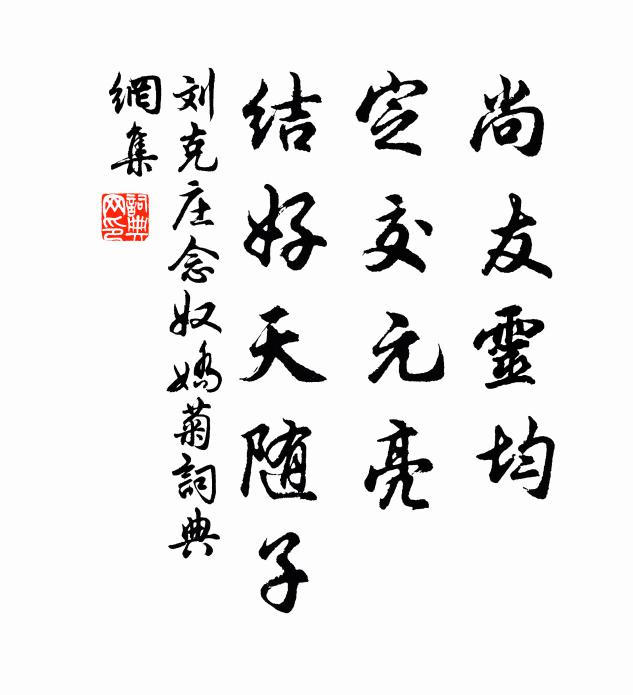 尚友靈均
定交元亮
结好天随子
刘克庄念奴嬌菊詞典
網集
詞典網印